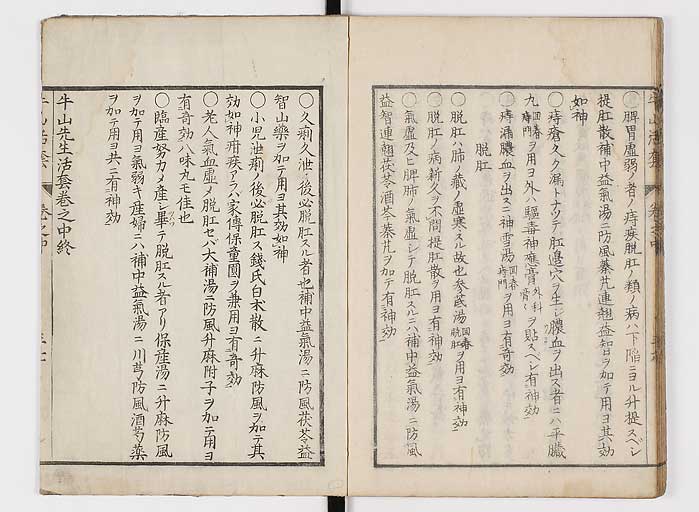 ○脾胃虚弱ノ者ノ痔疾脱肛ノ類ノ病ハ下陥ニヨル升提スベシ
提肛散補中益氣湯ニ防風蓁芃連翹益智ヲ加テ用ヨ其効
如神
○痔瘡久ク漏トナツテ肛邉穴ヲ生シ膿血ヲ出ス者ニハ平臓
九回春痔門ヲ用ヨ外ハ驅毒神應膏外科膏ヲ貼スベシ有神効
○痔漏膿血ヲ出スニ神雪湯回春痔門ヲ用ヨ有奇効
脱肛
○脱肛ハ肺ノ藏ノ虚寒スル故也参茋湯回春脱肛ヲ用ヨ有神効
○脱肛ノ病新久ヲ不問提肛散ヲ用ヨ有神効
○氣虚及ヒ脾肺ノ氣虚シテ脱肛スルニハ補中益氣湯ニ防風
益智連翹茯苓酒芩蓁芃ヲ加テ有神効
牛山活套 巻之中
○久痢久泄ノ後必脱肛スル者也補中益氣湯ニ防風茯苓益
智山藥ヲ加テ用ヨ其効如神
○小児泄痢ノ後必脱肛ス錢氏白朮散ニ升麻防風ヲ加テ其
効如神疳疾アラハ家傳保童圓ヲ兼用ヨ有奇効
○老人氣血虚メ脱肛セバ大補湯ニ防風升麻附子ヲ加テ用ヨ
有奇効八味丸モ佳也
○臨産努力メ産シ畢テ脱肛スル者アリ保産湯ニ升麻防風
ヲ加テ用ヨ氣弱キ産婦ニハ補中益氣湯ニ川芎防風酒芍藥
ヲ加テ用ヨ共ニ有神効
牛山先生活套巻之中終